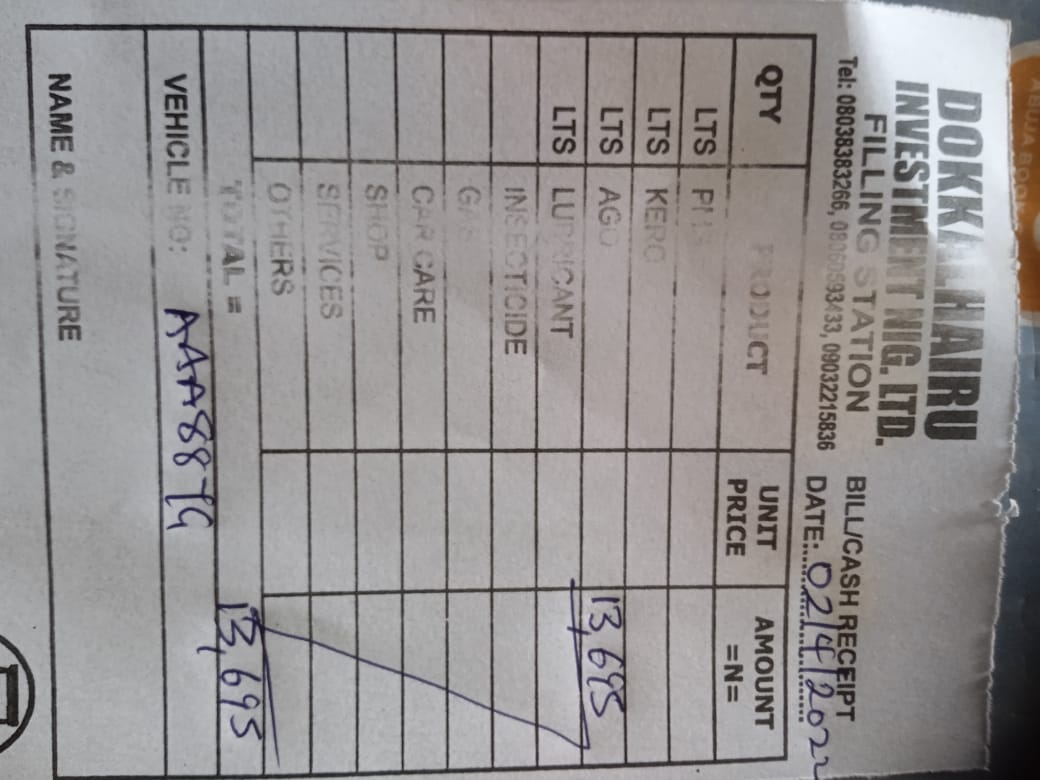 DOKKAL HAIRU
INVESTMENT NIG. LTD.
FILLING STATION
Tel: 08038383266, 08060593433, 09032215836
BILL/CASH RECEIPT
DATE: 02/4/2022
QTY PRODUCT UNIT PRICE AMOUNT =N=
LTS PMS
LTS KERO
LTS AGO 13,695
LTS LUBRICANT
INSECTICIDE
GAS
CAR CARE
SHOP
SERVICES
OTHERS
TOTAL = 13,695
VEHICLE NO:
NAME & SIGNATURE